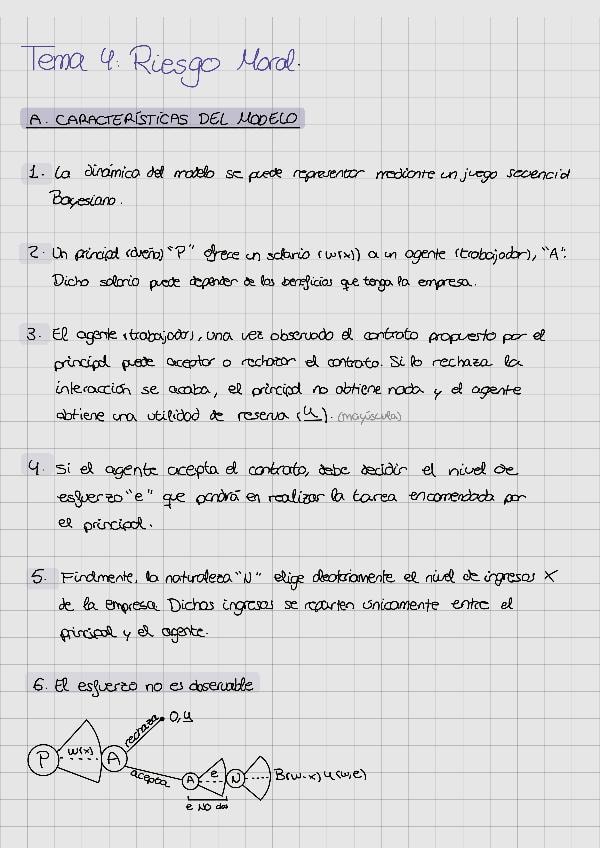 Tema 4: Riesgo Moral.
A. CARACTERÍSTICAS DEL MODELO
1. La dinámica del modelo se puede representar mediante un juego secuencial
Bayesiano.
2. Un principal (dueño) "P" ofrece un salario (w(x)) a un agente (trabajador), "A".
Dicho salario puede depender de los beneficios que tenga la empresa.
3. El agente (trabajador), una vez observado el contrato propuesto por el
principal puede aceptar o rechazar el contrato. Si lo rechaza la
interacción se acaba, el principal no obtiene nada y el agente
obtiene una utilidad de reserva (U). (mayúscula)
4. Si el agente acepta el contrato, debe decidir el nivel de
esfuerzo "e" que pondrá en realizar la tarea encomendada por
el principal.
5. Finalmente, la naturaleza "N" elige aleatoriamente el nivel de ingresos X
de la empresa. Dichos ingresos se reparten únicamente entre el
principal y el agente.
6. El esfuerzo no es observable
rechaza 0, U
P w(x) A
acepta A e N B(w-x) U(w,e)
e NO obs